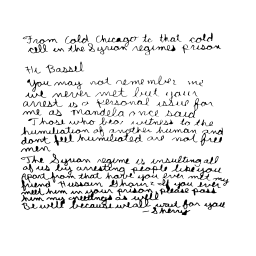 From Cold Chicago to that cold
cell in the Syrian regimes prison
Hi Bassel
You may not remember me
we never met but your
arrest is a personal issue for
me as mandela once said
Those who bear witness to the
humiliation of another human and
dont feel humiliated are not free
men
The Syrian regime is insulting all
of us by arresting people like you
Apart from that have you ever met my
friend Hussain if you ever
meet him in your prison please pass
him my greetings as well
Be well because we all wait for you
- Sherry